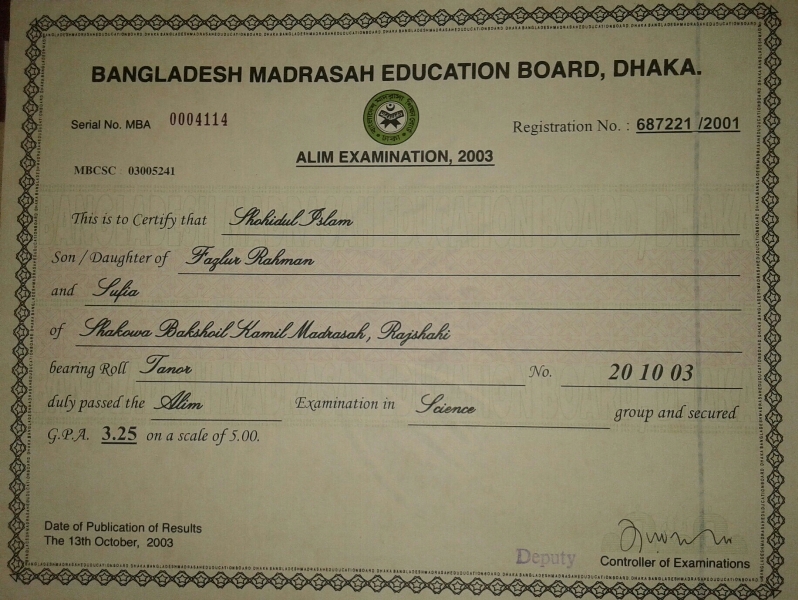 BANGLADESH MADRASAH EDUCATION BOARD, DHAKA.
Serial No. MBA 0004114
Registration No. : 687221 /2001
ALIM EXAMINATION, 2003
MBCSC 03005241
This is to Certify that Shohidul Islam
Son / Daughter of Fazlur Rahman
and Sufia
of Shakowa Bakshoil Kamil Madrasah, Rajshahi
bearing Roll Tanor No. 20 10 03
duly passed the Alim Examination in Science group and secured
G.P.A. 3.25 on a scale of 5.00.
Date of Publication of Results
The 13th October, 2003
Deputy Controller of Examinations